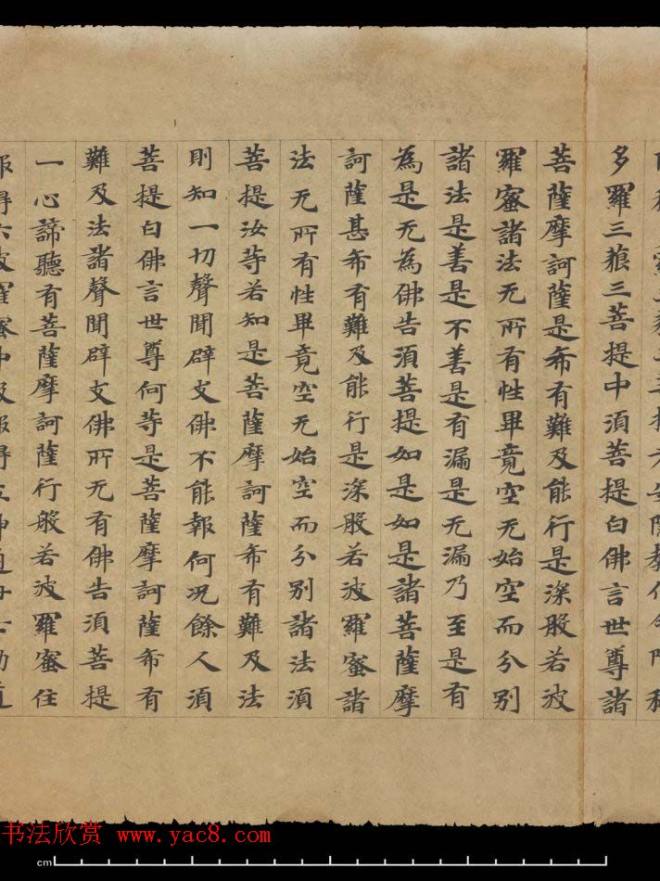 多羅三藐三菩提中須菩提白佛言世尊諸
菩薩摩訶薩是希有難及能行是深般若波
羅蜜諸法无所有性畢竟空无始空而分別
諸法是善是不善是有漏是无漏乃至是有
為是无為佛告須菩提如是如是諸菩薩摩
訶薩甚希有難及能行是深般若波羅蜜諸
法无所有性畢竟空无始空而分別諸法須
菩提汝等若知是菩薩摩訶薩希有難及法
則知一切聲聞辟支佛不能報何況餘人須
菩提白佛言世尊何等是菩薩摩訶薩希有
難及法諸聲聞辟支佛所无有佛告須菩提
一心諦聽有菩薩摩訶薩行般若波羅蜜住
书法欣赏 www.yac8.com
cm